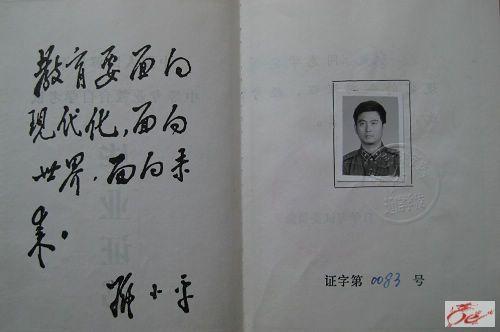 教育要面向
现代化,面向
世界,面向未
来。
邓小平
证字第 0083 号